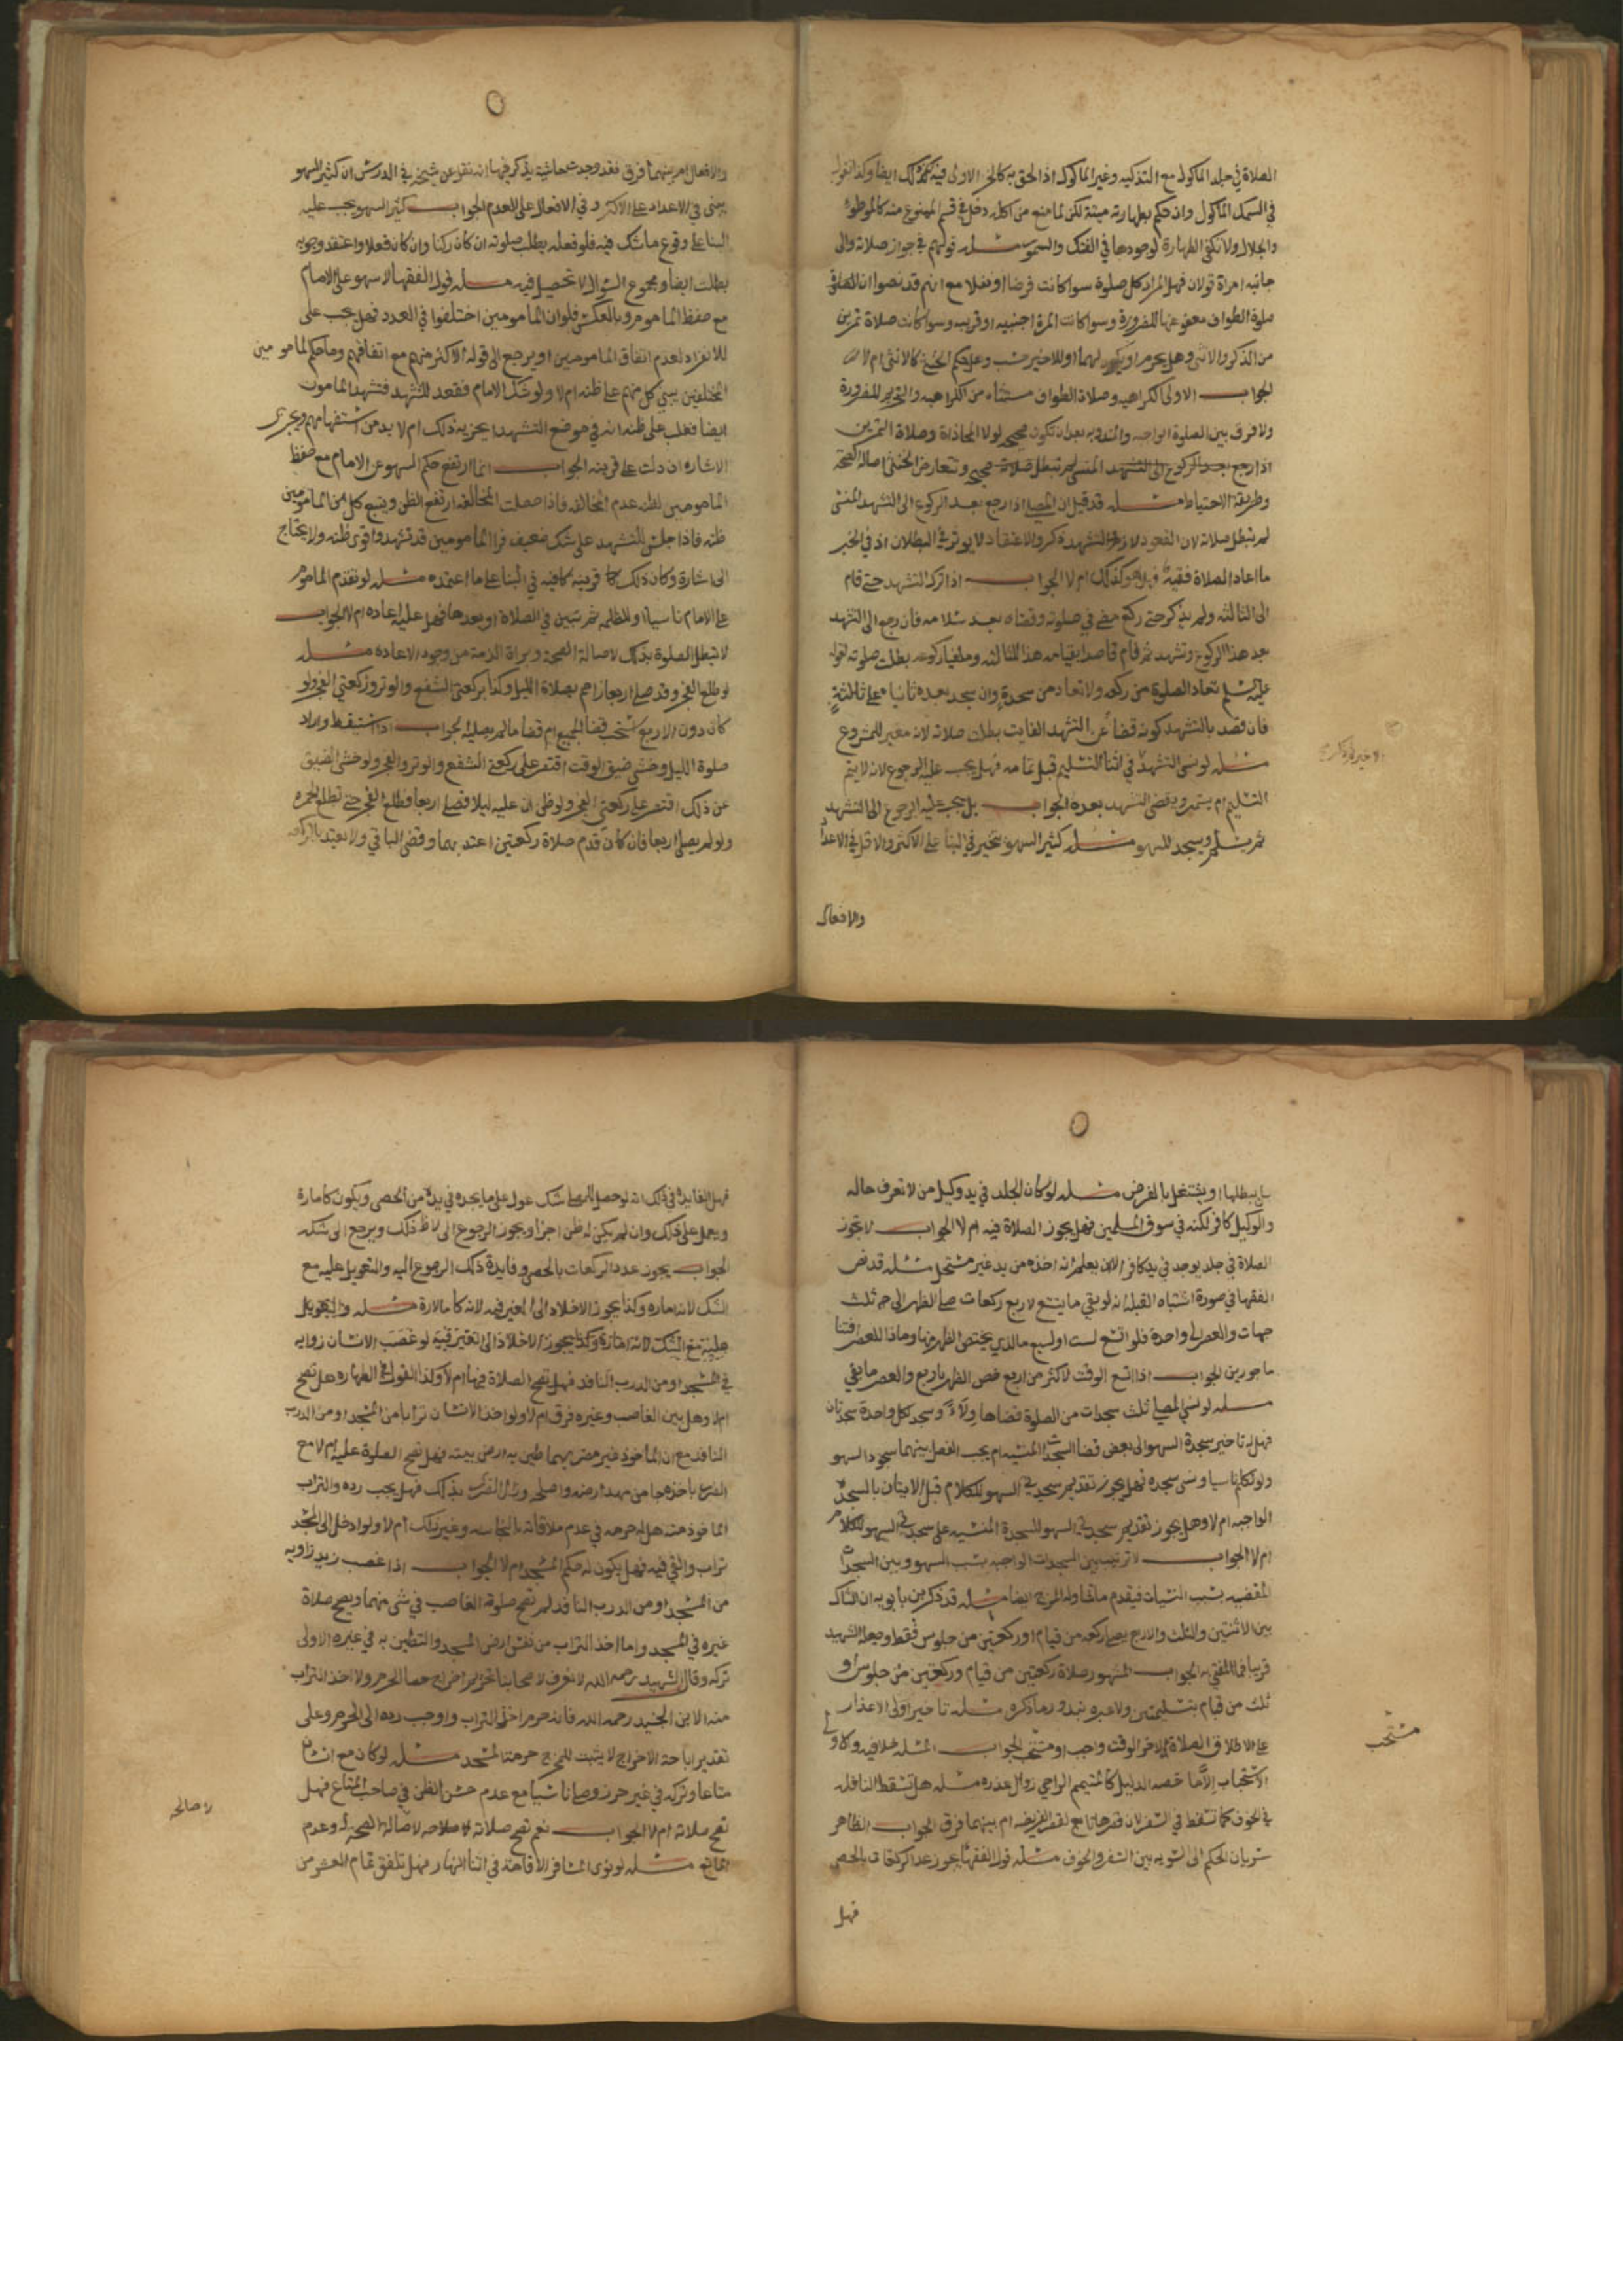 الصلاة في جلد الماكول مع التذكيه وغير الماكول اذا لحق به كالخز الاولى فيه كذلك ايضا وكذا القول
في السمك الماكول وان حكم بطهارته ميتة لكن لما منع من اكله دخل في قسم الممنوع منه كالموطوة
والجلال ولا تكفي الطهارة لوجودها في الفنك والسمور مسله قولهم في جواز صلاته والى
جانبه امراة قولان فهل المراد كل صلوة سوا كانت فرضا او نفلا مع انهم قد نصوا ان
صلوة الطواف معفو عنها للضرورة وسوا كانت المرة اجنبيه او قريبه وسوا كانت صلاة تمرين
من الذكر والانثى وهل يحرم او يكره لهما او للاخير حسب وهل حكم الخنثى كالانثى ام لا
الجواب الاولى الكراهيه وصلاة الطواف مستثناه من الكراهيه والتحريم للضرورة
ولا فرق بين الصلوة الواجبه والمندوبه بعد ان تكون صحيحه لولا المحاذاة وصلاة التمرين
اذا رجع بعد الركوع الى التشهد المنسي لم تبطل صلاته صحيحه وتتعارض الخنثى اصالة الصحة
وطريقة الاحتياط مسله قد قيل ان المصلي اذا رجع بعد الركوع الى التشهد المنسي
لم تبطل صلاته لان القعود والتشهد ذكر والاعتقاد لا يوثر في البطلان اذ في الخبر
ما اعاد الصلاة فقيه فهل هو كذلك ام لا الجواب اذا ترك التشهد حتى قام
الى الثالثه ولم يذكر حتى ركع مضى في صلوته وقضاه بعد سلامه فان رجع الى التشهد
بعد هذا الركوع وتشهد ثم قام قاصدا بقيامه هذا للثالثه وملغيا ركوعه بطلت صلوته لقوله
عليه السلم تعاد الصلوة من ركعه ولا تعاد من سجدة وان سجد بعده ثانيا على ثالثة
فان قصد بالتشهد كونه قضا عن التشهد الفايت بطلت صلاته لانه مغير للمشروع
مسله لو نسى التشهد في اثنا التسليم قبل تمامه فهل يجب عليه الرجوع لانه لا يتم
التسليم ام يستمر ويقضى التشهد بعده الجواب بل يجب عليه الرجوع الى التشهد
ثم يسلم ويسجد للسهو مسله كثير السهو يتخير في البنا على الاكثر والاقل في الاعداد
والافعال
والافعال ام بينهما فرق فقد وجدت حاشية يذكر فيها انه نقل عن شيخه في الدرس ان كثير السهو
يبنى في الاعداد على الاكثر وفي الافعال على العدم الجواب كثير السهو يجب عليه
البنا على وقوع ما شك فيه فلو فعله بطلت صلوته ان كان ركنا وان كان فعلا واعتقد وجوبه
بطلت ايضا ومجموع السوال لا تحصيل فيه مسله قول الفقها لا سهو على الامام
مع حفظ الماموم وبالعكس فلو ان المامومين اختلفوا في العدد فهل يجب على
الانفراد لعدم اتفاق المامومين او يرجع الى قول الاكثر منهم مع اتفاقهم وما حكم المامومين
المختلفين يبنى كل منهم على ظنه ام لا ولو شك الامام فقعد للتشهد فتشهد المامون
ايضا فغلب على ظنه انه في موضع التشهد ايجزيه ذلك ام لا بد من استفهامهم ويجزى
الاشاره ان دلت على قرينه الجواب انما ارتفع حكم السهو عن الامام مع حفظ
المامومين لظنه عدم المخالفه فاذا حصلت المخالفه ارتفع الظن ويتبع كل من المامومين
ظنه فاذا جلس للتشهد على شك ضعيف فراى المامومين قد تشهدوا قوى ظنه ولا يحتاج
الى اشارة وكان ذلك قرينه كافيه في البنا على ما اعتمده مسله لو تقدم الماموم
على الامام ناسيا او للظلمه ثم تبين في الصلاة او بعدها فهل عليه اعاده ام لا الجواب
لا تبطل الصلوة بذلك لاصالة الصحة وبراة الذمة من وجوب الاعاده مسله
لو طلع الفجر وقد صلى اربعا زاحم بصلاة الليل وكذا بركعتى الشفع والوتر وركعتي الفجر ولو
كان دون الاربع استحب قضا الجميع ام قضا ما لم يصليه الجواب اذا استيقظ واراد
صلوة الليل وخشى ضيق الوقت اقتصر على ركعتي الشفع والوتر والفجر ولو خشى الضيق
عن ذلك اقتصر على ركعتي الفجر ولو ظن ان عليه ليلا فصلى اربعا وطلع الفجر حتى تطلع الحمره
ولو لم يصل اربعا فان كان قدم صلاة ركعتين اعتد بهما وقضى الباقي ولا يعتد بالركعه
بل يبطلها او يشتغل بالفرض مسله لو كان الجلد في يد وكيل من لا تعرف حاله
والوكيل كافر لكنه في سوق المسلمين فهل يجوز الصلاة فيه ام لا الجواب لا تجوز
الصلاة في جلد يوجد في يد كافر الا ان يعلم انه اخذه من يد غير مستحل مسله قد نص
الفقها في صورة اشتباه القبلة انه لو بقي ما يتسع لاربع ركعات صلى الظهر الى جه ثلث
جهات والعصر الى واحدة فلو اتسع لست او لسبع ما الذي يختص الظهر منها وماذا للعصر افتنا
ماجورين الجواب اذا اتسع الوقت لاكثر من اربع خص الظهر باربع والعصر ما بقي
مسله لو نسي المصلي ثلث سجدات من الصلوة قضاها ولاء وسجد لكل واحدة سجدتان
فهل له تاخير سجدة السهو الى بعض قضا السجدات المنسيه ام يجب الفصل بينهما سجود السهو
ولو تكلم ناسيا ونسى سجده فهل يجوز تقديم سجدتي السهو للكلام قبل الاتيان بالسجدة
الواجبه ام لا وهل يجوز تقديم سجدتي السهو للسجدة المنسيه على سجدتي السهو للكلام
ام لا الجواب لا ترتيب بين السجدات الواجبه بسبب السهو وبين السجدات
المقضيه بسبب النسيان فيقدم ما شا وله المزج ايضا مسله قد ذكر بن بابويه ان الشاك
بين الاثنتين والثلث والاربع يصلى ركعه من قيام او ركعتين من جلوس فقط وجعله الشهيد
قريبا فما المفتى به الجواب المشهور صلاة ركعتين من قيام وركعتين من جلوس او
ثلث من قيام بتسليمتين ولا عبره بندور ما ذكره مسله تاخير اولى الاعذار
على الاطلاق الصلاة لاخر الوقت واجب او مستحب الجواب المسله خلافيه والاولى
مستحب
الاستحباب الا ما خصه الدليل كالمتيمم الراجي زوال عذره مسله هل تسقط النافله
في الخوف كما تسقط في السفر لان قصرها تابع لقصر الفريضه ام بينهما فرق الجواب الظاهر
سريان الحكم الى التسويه بين السفر والخوف مسله قول الفقها يجوز عد الركعات بالحصى
فهل
فهل الفايدة في ذلك انه لو حصل للمصلي شك عول على ما يجده في يده من الحصى ويكون كامارة
ويعمل على ذلك وان لم يكن له ظن اجزا ويجوز الرجوع الى لا ظ ذلك ويرجع الى شكه
الجواب يجوز عدد الركعات بالحصى وفايدة ذلك الرجوع اليه والتعويل عليه مع
الشك لانه اماره وكذا يجوز الاخلاد الى المعين فيه لانه كالامارة مسله والتعويل
عليه مع الشك لانه امارة وكذا يجوز الاخلاد الى الغير فيه لو غصب الانسان زوايه
في المسجد او من الدرب النافد فهل تصح الصلاة فيها ام لا وكذا القول في الطهاره هل تصح
ام لا وهل بين الغاصب وغيره فرق ام لا ولو اخذ الانسان ترابا من المسجد او من الدرب
النافد مع ان الماخوذ غير مضر بهما طين به ارض بيته فهل تصح الصلوة عليه ام لا مع
الماخوذ منه هل له حرمه في عدم ملاقاته بالنجاسه وغير ذلك ام لا ولو ادخل الى المسجد
تراب والقي فيه فهل يكون له حكم المسجد ام لا الجواب اذا غصب زيد زاويه
من المسجد او من الدرب النافد لم تصح صلوة الغاصب في شى منهما ويصح صلاة
غيره في المسجد واما اخذ التراب من نفس ارض المسجد والتطين به في غيره الاولى
تركه وقال الشهيد رحمه الله لا نعرف لاصحابنا تحريم اخراج حصا الحرم ولا اخذ التراب
منه الا ابن الجنيد رحمه الله فانه حرم اخذ التراب واوجب رده الى الحرم وعلى
تقدير اباحة الاخراج لا يثبت للمخرج حرمة المسجد مسله لو كان مع انسان
متاعا وتركه في غير حرز وصلى ناسيا مع عدم حسن الظن في صاحب المتاع فهل
تصح صلاته ام لا الجواب نعم تصح صلاته لاصالة الصحة وعدم
لاصالة
المانع مسله لو نوى المسافر الاقامة في اثنا النهار فهل تلفق تمام العشر من